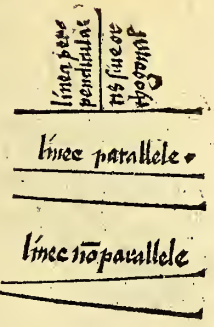 linea per
pendicula
ris siue or
linee parallele.
linee nō parallele